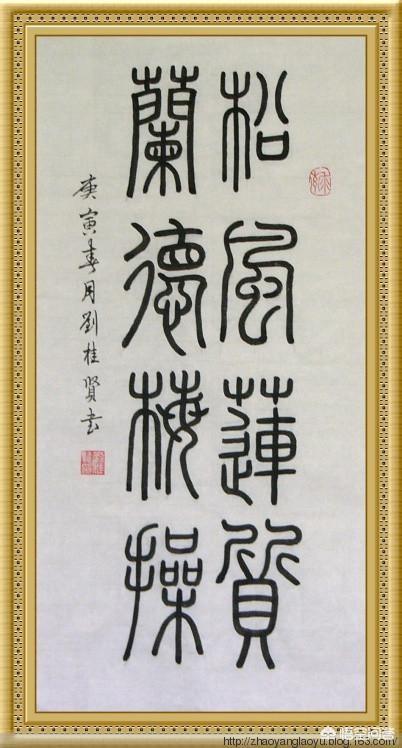 松風蓮質
蘭德梅操
庚寅春月劉桂賢书
http://zhaoyanglaoyu.blog.163.com/
悟空问答